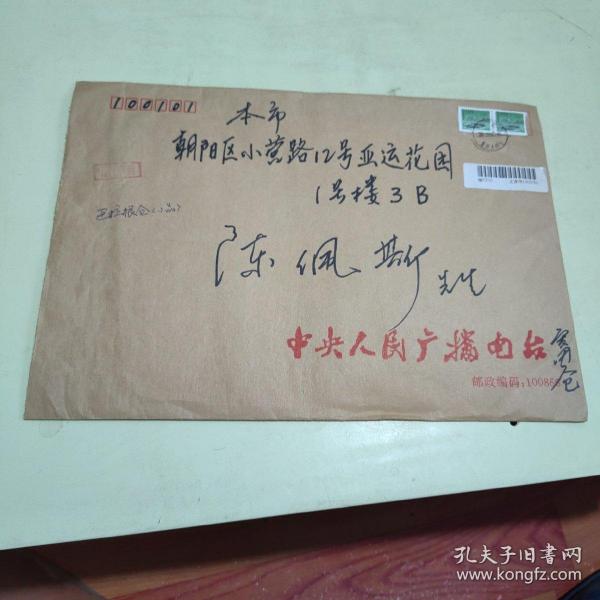 100101
本市
朝阳区小营路12号亚运花园
1号楼3B
陈佩斯先生
中央人民广播电台
邮政编码:10086
孔夫子旧书网
www.kongfz.com